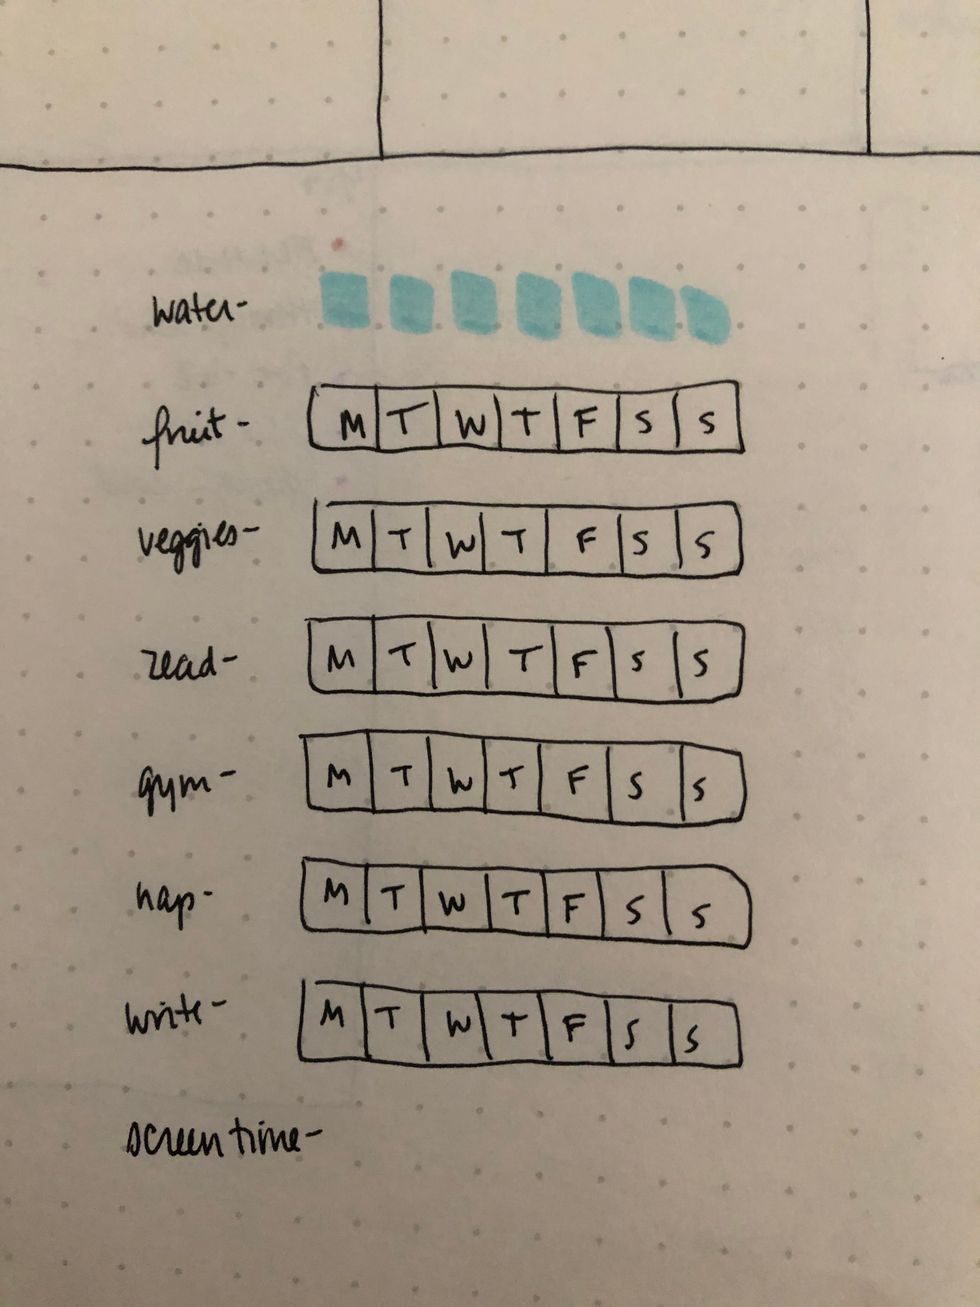 water-
fruit- M T W T F S S
veggies- M T W T F S S
read- M T W T F S S
gym- M T W T F S S
nap- M T W T F S S
write- M T W T F S S
screen time-